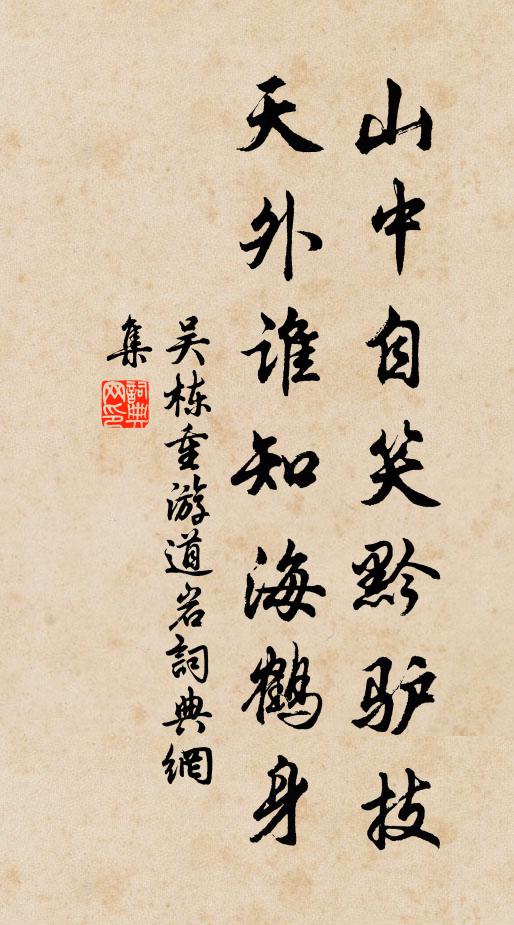 山中自笑黔驴技
天外谁知海鹤身
吴栋重游道岩詞典網
集
詞典
网印